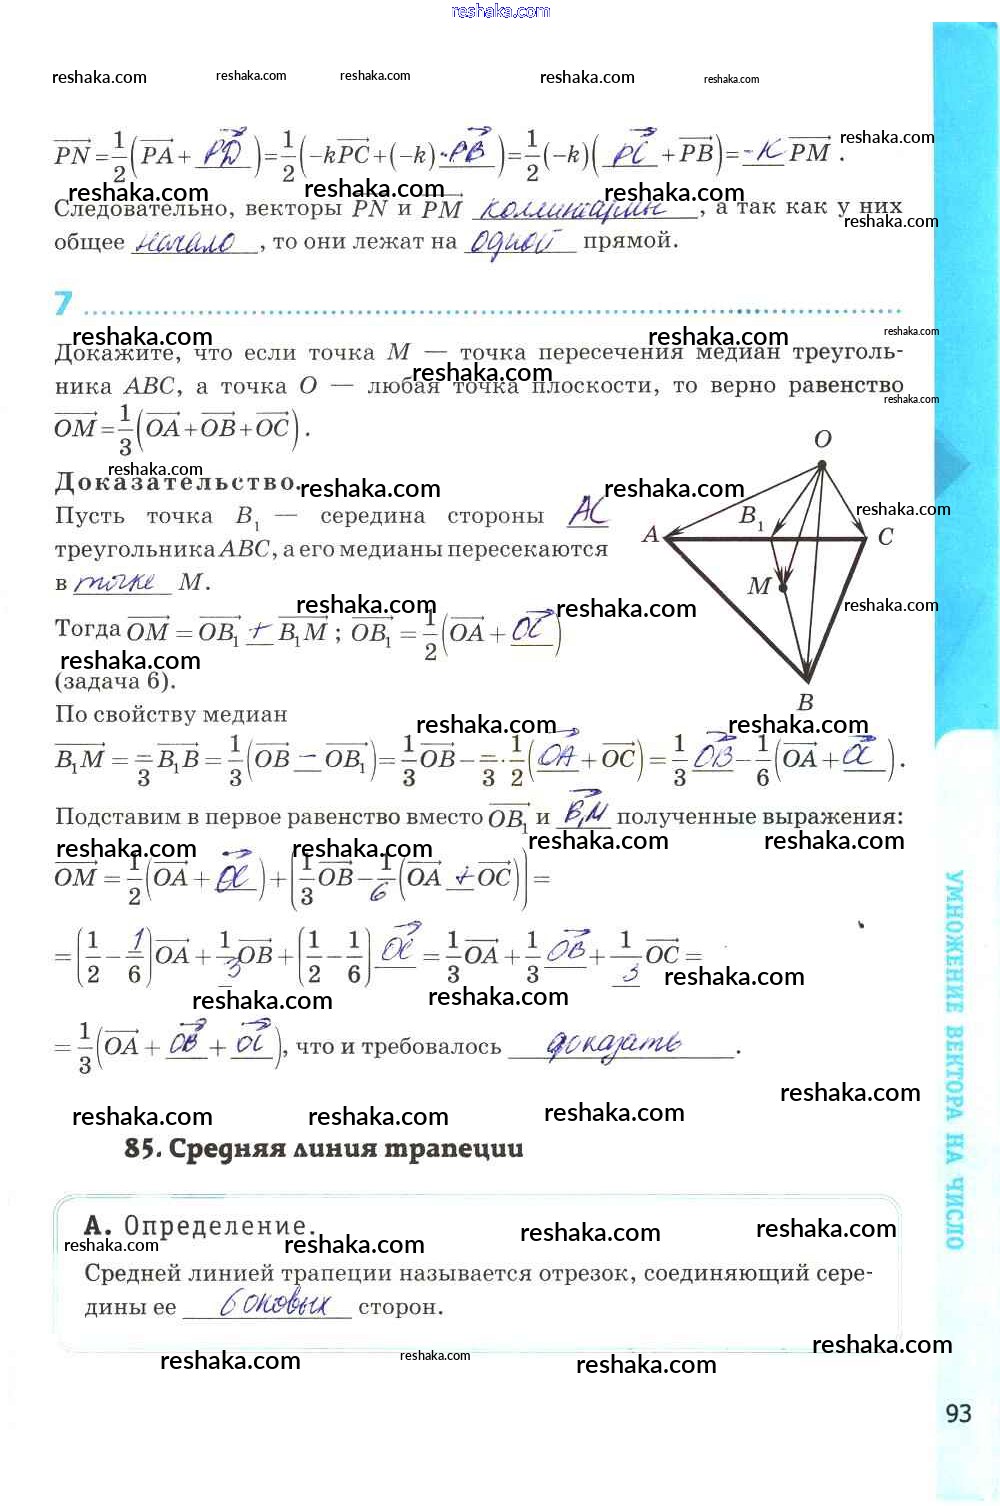 reshaka.com
reshaka.com reshaka.com reshaka.com reshaka.com reshaka.com
PN = 1/2 (PA + PD) = 1/2 (-kPC + (-k)·PB) = 1/2 (-k)(PC + PB) = -к PM .
reshaka.com
reshaka.com reshaka.com reshaka.com
Следовательно, векторы PN и PM коллинеарны, а так как у них
reshaka.com
общее начало, то они лежат на одной прямой.
7
reshaka.com reshaka.com reshaka.com
Докажите, что если точка M — точка пересечения медиан треуголь-
reshaka.com
ника ABC, а точка O — любая точка плоскости, то верно равенство
reshaka.com
OM = 1/3 (OA + OB + OC).
reshaka.com
Доказательство.
reshaka.com reshaka.com reshaka.com
Пусть точка B₁ — середина стороны AC
треугольника ABC, а его медианы пересекаются
в точке M.
reshaka.com reshaka.com reshaka.com
Тогда OM = OB₁ + B₁M ; OB₁ = 1/2 (OA + OC)
reshaka.com
(задача 6).
По свойству медиан
reshaka.com reshaka.com
B₁M = 1/3 B₁B = 1/3 (OB − OB₁) = 1/3 OB − 1/3 · 1/2 (OA + OC) = 1/3 OB − 1/6 (OA + OC).
Подставим в первое равенство вместо OB₁ и B₁M полученные выражения:
reshaka.com reshaka.com reshaka.com
OM = 1/2 (OA + OC) + (1/3 OB − 1/6 (OA + OC)) =
= (1/2 − 1/6) OA + 1/3 OB + (1/2 − 1/6) OC = 1/3 OA + 1/3 OB + 1/3 OC =
reshaka.com reshaka.com reshaka.com
= 1/3 (OA + OB + OC), что и требовалось доказать.
reshaka.com reshaka.com reshaka.com reshaka.com
O
A
B₁
C
M
B
85. Средняя линия трапеции
А. Определение.
reshaka.com reshaka.com reshaka.com reshaka.com
Средней линией трапеции называется отрезок, соединяющий сере-
дины ее боковых сторон.
reshaka.com reshaka.com reshaka.com reshaka.com
УМНОЖЕНИЕ ВЕКТОРА НА ЧИСЛО
93